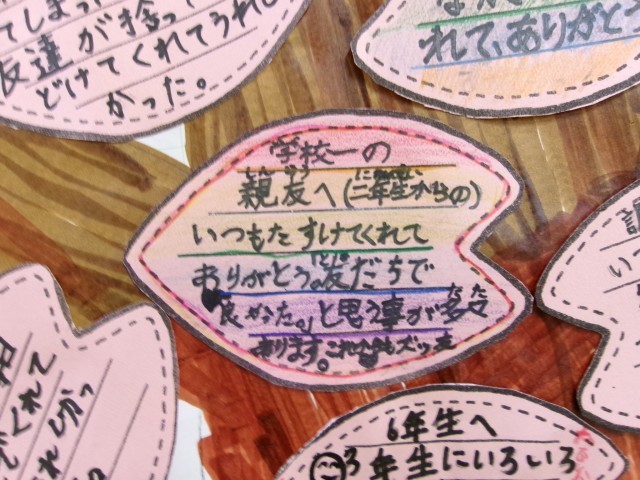 てしまっ
友達が拾っ
どけてくれてうれし
かった。
れて、ありがとう
学校一の
親友へ(二年生からの)
いつもたすけてくれて
ありがとう。友だちで
良かった。」と思う事が多々
あります。これからもズッ友
くれて
6年生へ
3年生にいろいろ